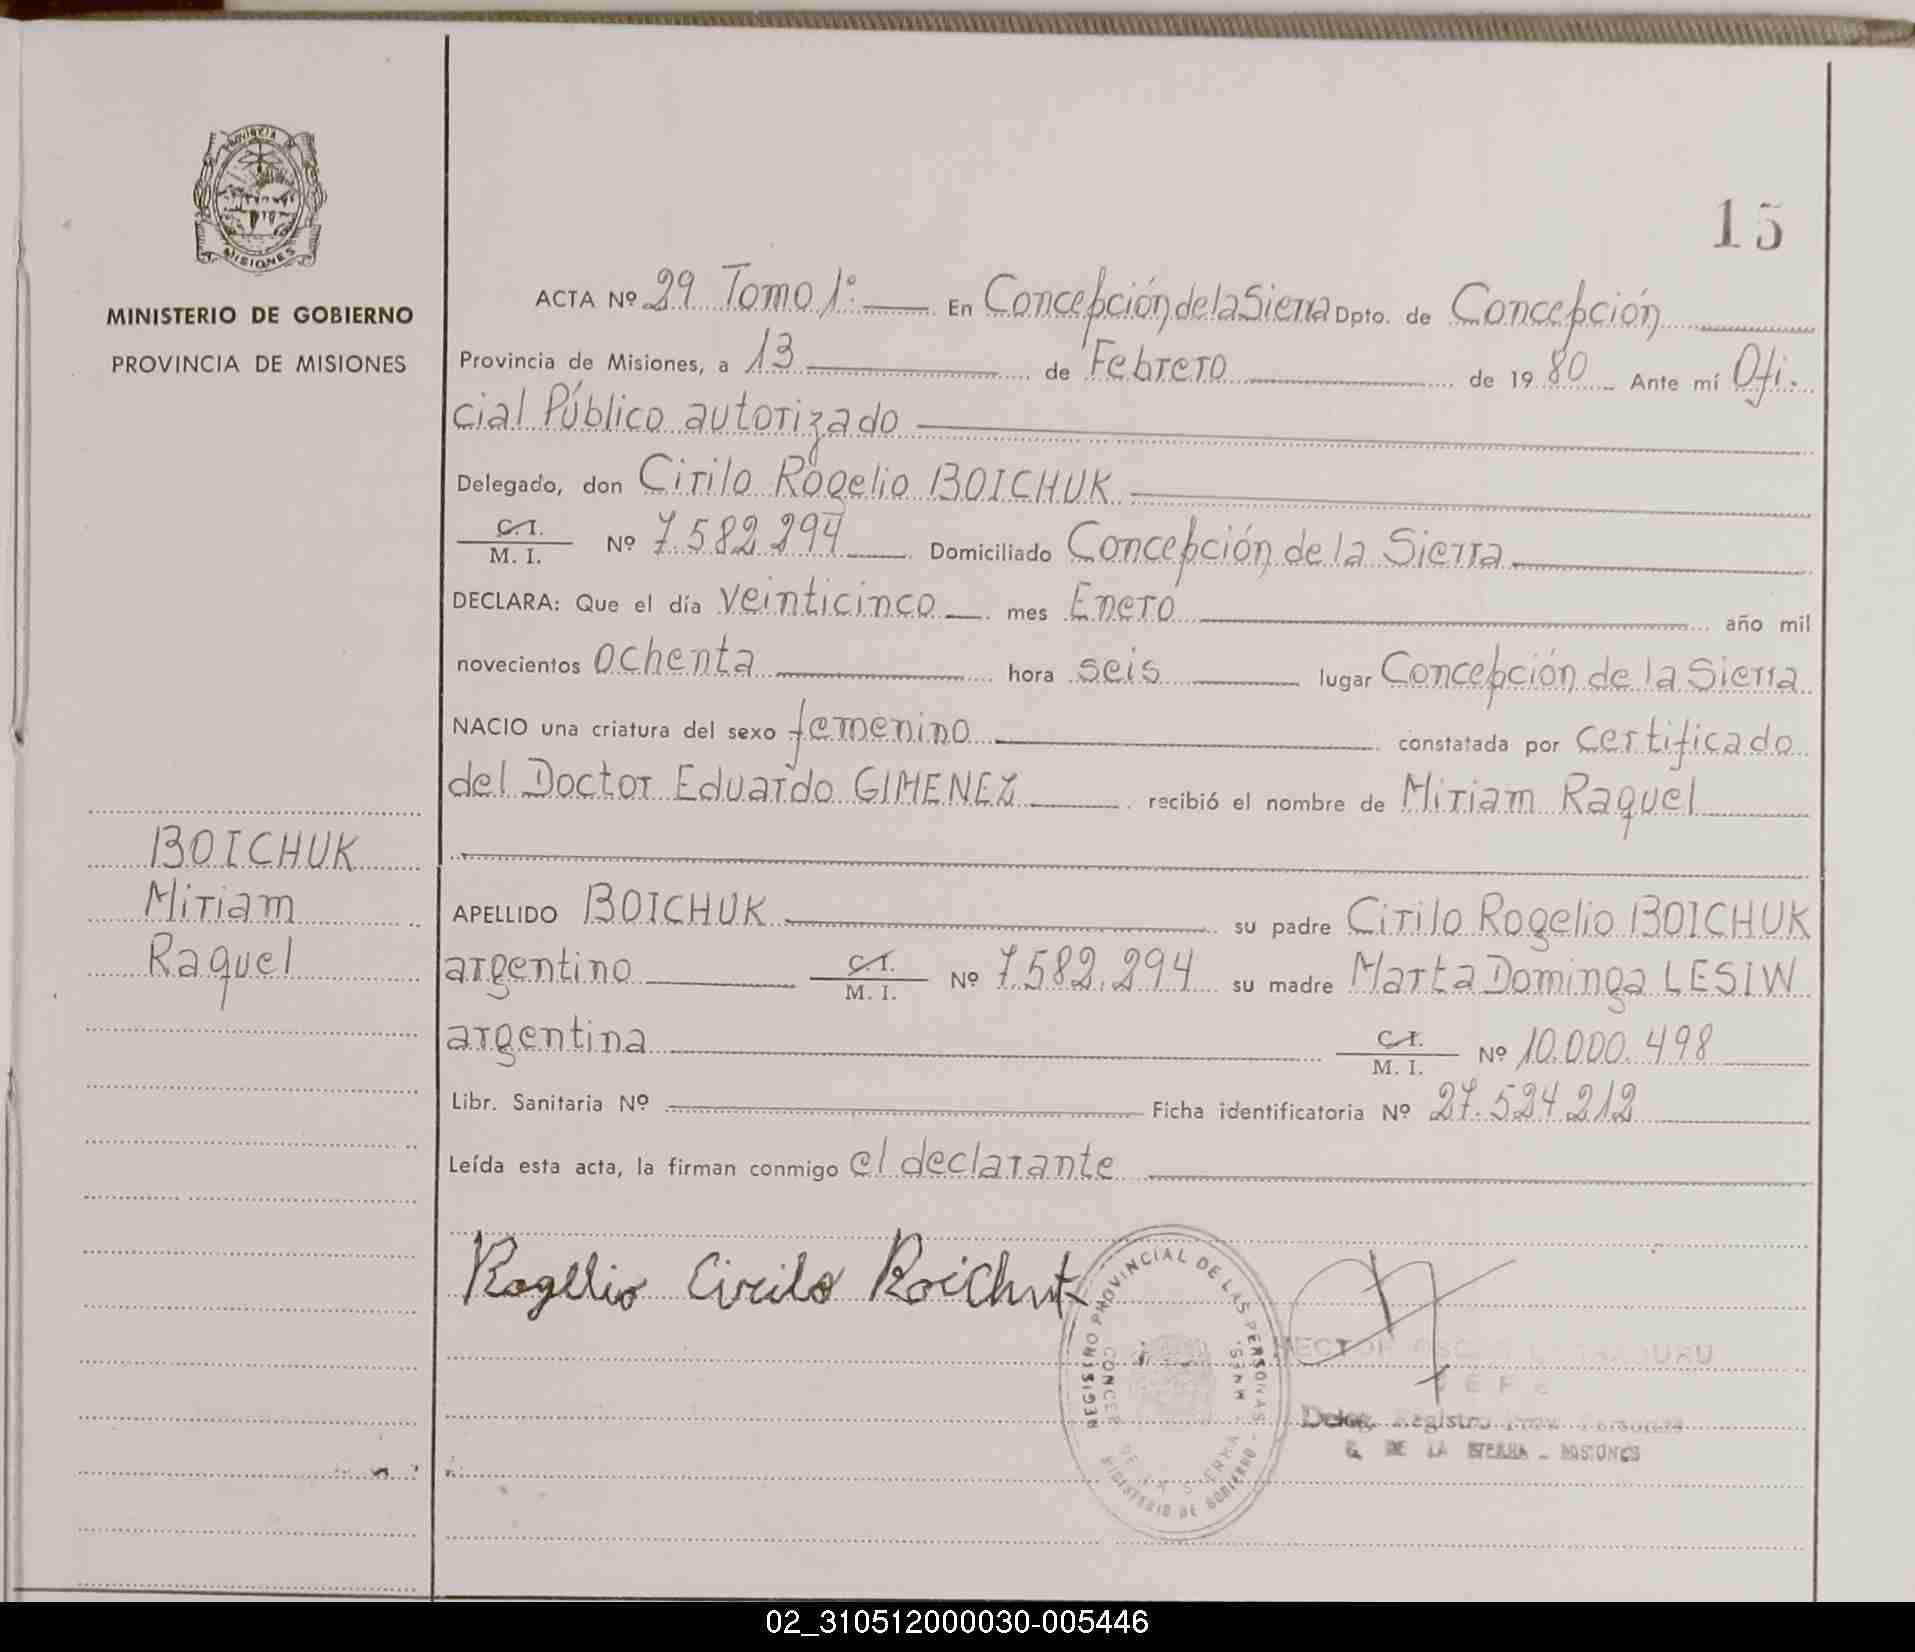 PROVINCIA DE
MISIONES
MINISTERIO DE GOBIERNO
PROVINCIA DE MISIONES
BOICHUK
Miriam
Raquel
15
ACTA Nº 29 Tomo 1º: En Concepción de la Sierra Dpto. de Concepción
Provincia de Misiones, a 13 de Febrero de 1980 Ante mí Ofi-
cial Público autorizado
Delegado, don Cirilo Rogelio BOICHUK
C. I.
M. I. Nº 7.582.294 Domiciliado Concepción de la Sierra
DECLARA: Que el día veinticinco mes Enero año mil
novecientos ochenta hora seis lugar Concepción de la Sierra
NACIO una criatura del sexo femenino constatada por certificado
del Doctor Eduardo GIMENEZ recibió el nombre de Miriam Raquel
APELLIDO BOICHUK su padre Cirilo Rogelio BOICHUK
argentino C. I. M. I. Nº 7.582.294 su madre Marta Dominga LESIW
argentina C. I. M. I. Nº 10.000.498
Libr. Sanitaria Nº Ficha identificatoria Nº 27.524.212
Leída esta acta, la firman conmigo el declarante
Rogelio Cirilo Boichuk
REGISTRO PROVINCIAL DE LAS PERSONAS
CONCEP. DE LA SIERRA - MNES.
MINISTERIO DE GOBIERNO
HECTOR
JEFE
Deleg. Registro Prov. Personas
C. DE LA SIERRA - MISIONES
02_310512000030-005446